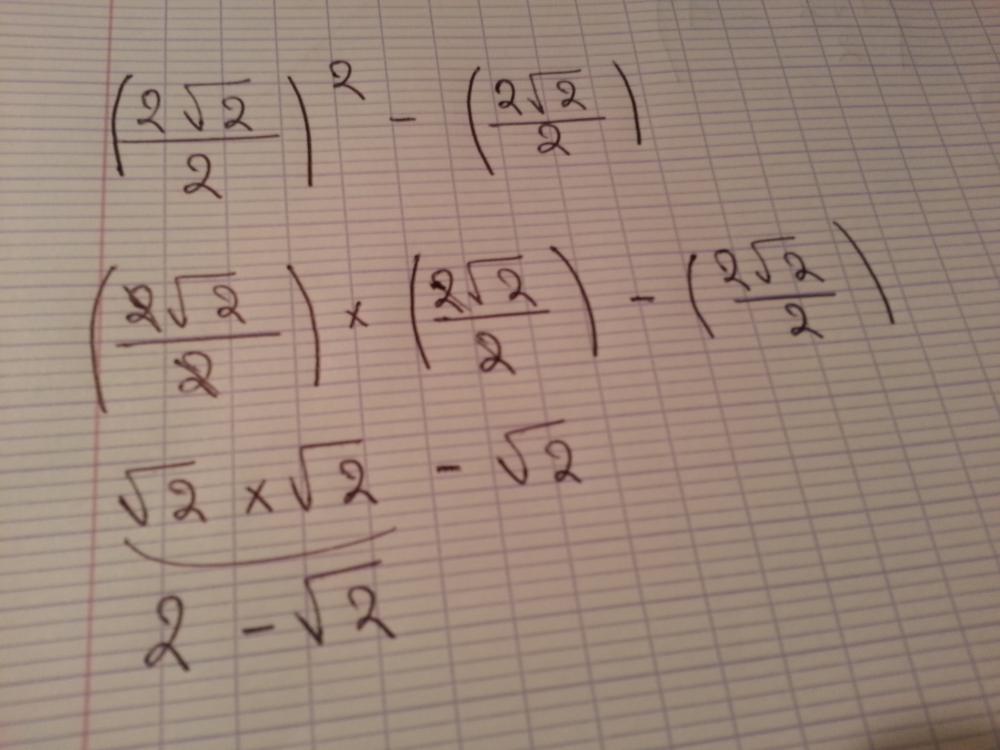 (2√2/2)² - (2√2/2)
(2√2/2) × (2√2/2) - (2√2/2)
√2 × √2 - √2
2 - √2